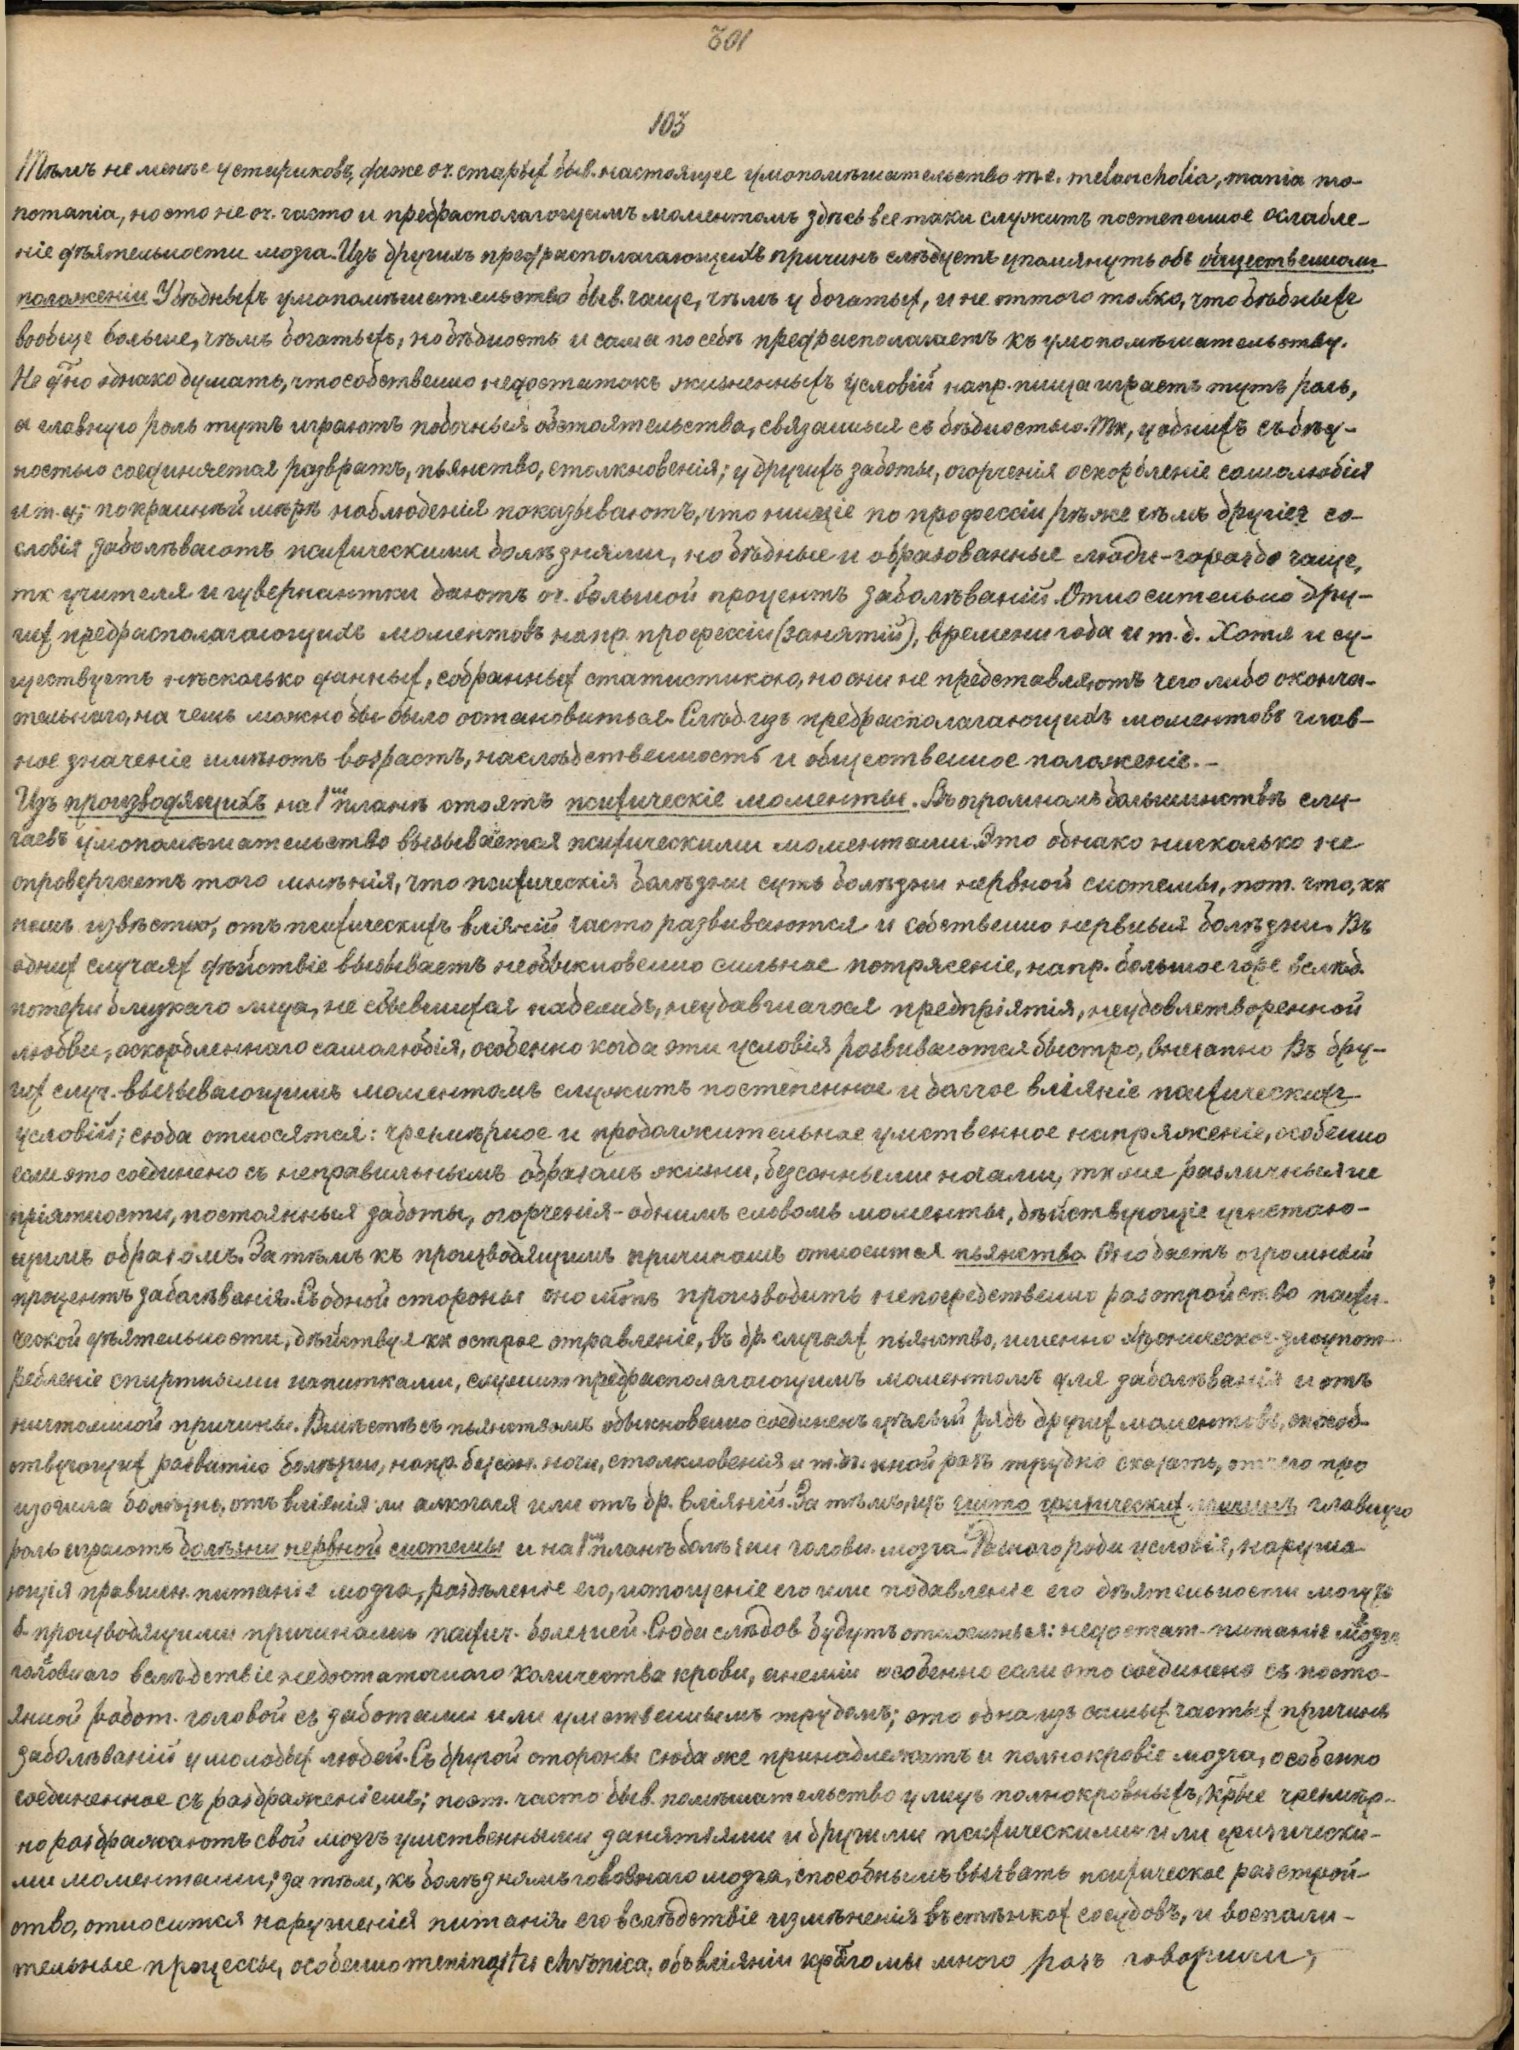 301
103
Тѣмъ не менѣе у стариковъ, даже оч. старыхъ быв. настоящее умопомѣшательство т.е. melancholia, mania mo-
nomania, но это не оч. часто и предрасполагающимъ моментомъ здѣсь все таки служитъ постепенное ослабле-
ніе дѣятельности мозга. Изъ другихъ предрасполагающихъ причинъ слѣдуетъ упомянуть объ общественномъ
положеніи У бѣдныхъ умопомѣшательство быв. чаще, чѣмъ у богатых, и не оттого только, что бѣдныхъ
вообще больше, чѣмъ богатыхъ, но бѣдность и сама по себѣ предрасполагаетъ къ умопомѣшательству.
Не д̃но однако думать, что собственно недостатокъ жизненныхъ условій напр. пища играетъ тутъ роль,
а главную роль тутъ играютъ побочныя обстоятельства, связанныя съ бѣдностью. Тк, у однихъ съ бѣд-
ностью соединяется развратъ, пьянство, столкновенія; у другихъ заботы, огорченія оскорбленіе самолюбія
и т. д; по крайнѣй мѣрѣ наблюденія показываютъ, что нищіе по профессіи рѣже чѣмъ другіе со-
словія заболѣваютъ психическими болѣзнями, но бѣдные и образованные люди - гораздо чаще,
тк учителя и гувернантки даютъ оч. большой процентъ заболѣваній. Относительно дру-
гих предрасполагающихъ моментовъ напр. професcіи (занятій), времени года и т. д. Хотя и су-
ществуетъ нѣсколько данных, собранных статистикою, но они не представляютъ чего либо оконча-
тельнаго, на чемъ можно бы было остановиться. Слѣд изъ предрасполагающихъ моментовъ глав-
ное значеніе имѣютъ возрастъ, наслѣдственность и общественное положеніе. -
Изъ производящихъ на 1мъ планѣ стоятъ психическіе моменты. Въ огромномъ большинствѣ слу-
чаевъ умопомѣшательство вызывается психическими моментами. Это однако нисколько не
опровергаетъ того мнѣнія, что психическія болѣзни суть болѣзни нервной системы, пот. что, кк
намъ извѣстно, отъ психическихъ вліяній часто развиваются и собственно нервныя болѣзни. Въ
одних случаях дѣйствіе вызываетъ необыкновенно сильное потрясеніе, напр. большое горе всл.
потери близкаго лица, не сбывшихся надеждъ, неудавшагося предпріятія, неудовлетворенной
любви, оскорбленнаго самолюбія, особенно когда эти условія развиваются быстро, внезапно Въ дру-
гих случ. вызывающимъ моментомъ служитъ постепенное и долгое вліяніе психическихъ
условій; сюда относятся: чрезмѣрное и продолжительное умственное напряженіе, особенно
если это соединено съ неправильнымъ образомъ жизни, безсонными ночами, тк же различныя не
пріятности, постоянныя заботы, огорченія - однимъ словомъ моменты, дѣйствующіе угнетаю-
щимъ образомъ. Затѣмъ къ производящимъ причинамъ относится пьянство. Оно даетъ огромный
процентъ заболѣванія. Съ одной стороны оно м̃тъ производить непосредственно разстройство психи-
ческой дѣятельности, дѣйствуя кк острое отравленіе, въ др. случаях пьянство, именно хроническое злоупот-
ребленіе спиртными напитками, служит предрасполагающимъ моментомъ для заболѣванія и отъ
ничтожной причины. Вмѣстѣ съ пьянствомъ обыкновенно соединенъ цѣлый рядъ других моментовъ, способ-
ствующих развитію болѣзни, напр. безсон. ночи, столкновенія и т. д. иной разъ трудно сказать, отчего про
изошла болѣзнь, отъ вліянія ли алкоголя или отъ др. вліяній. Затѣмъ, изъ чисто физических причинъ главную
роль играютъ болѣзни нервной системы и на 1мъ планѣ болѣзни головн. мозга. Разнаго рода условія, наруша
ющія правильн. питаніе мозга, раздраженіе его, истощеніе его или подавленіе его дѣятельности могутъ
б. производящими причинами психич. болезней. Сюда слѣдов будутъ относиться: недостат. питанія мозга
головнаго вслѣдствіе недостаточнаго количества крови, анеміи особенно если это соединено съ посто-
янной работ. головой съ заботами или умственнымъ трудомъ; это одна изъ самых частых причинъ
заболѣваній у молодых людей. Съ другой стороны сюда же принадлежитъ и полнокровіе мозга, особенно
соединенное съ раздраженіемъ; поэт. часто быв. помѣшательство у лицъ полнокровныхъ, к̃рые чрезмѣр-
но раздражаютъ свой мозгъ умственными занятіями и другими психическими или физически-
ми моментами; затѣм, къ болѣзнямъ головнаго мозга, способнымъ вызвать психическое разстрой-
ство, относится нарушенія питанія его вслѣдствіе измѣненія въ стѣнках сосудовъ, и воспали-
тельные процессы, особенно meningitis chronica, объ вліяніи к̃раго мы много разъ говорили;